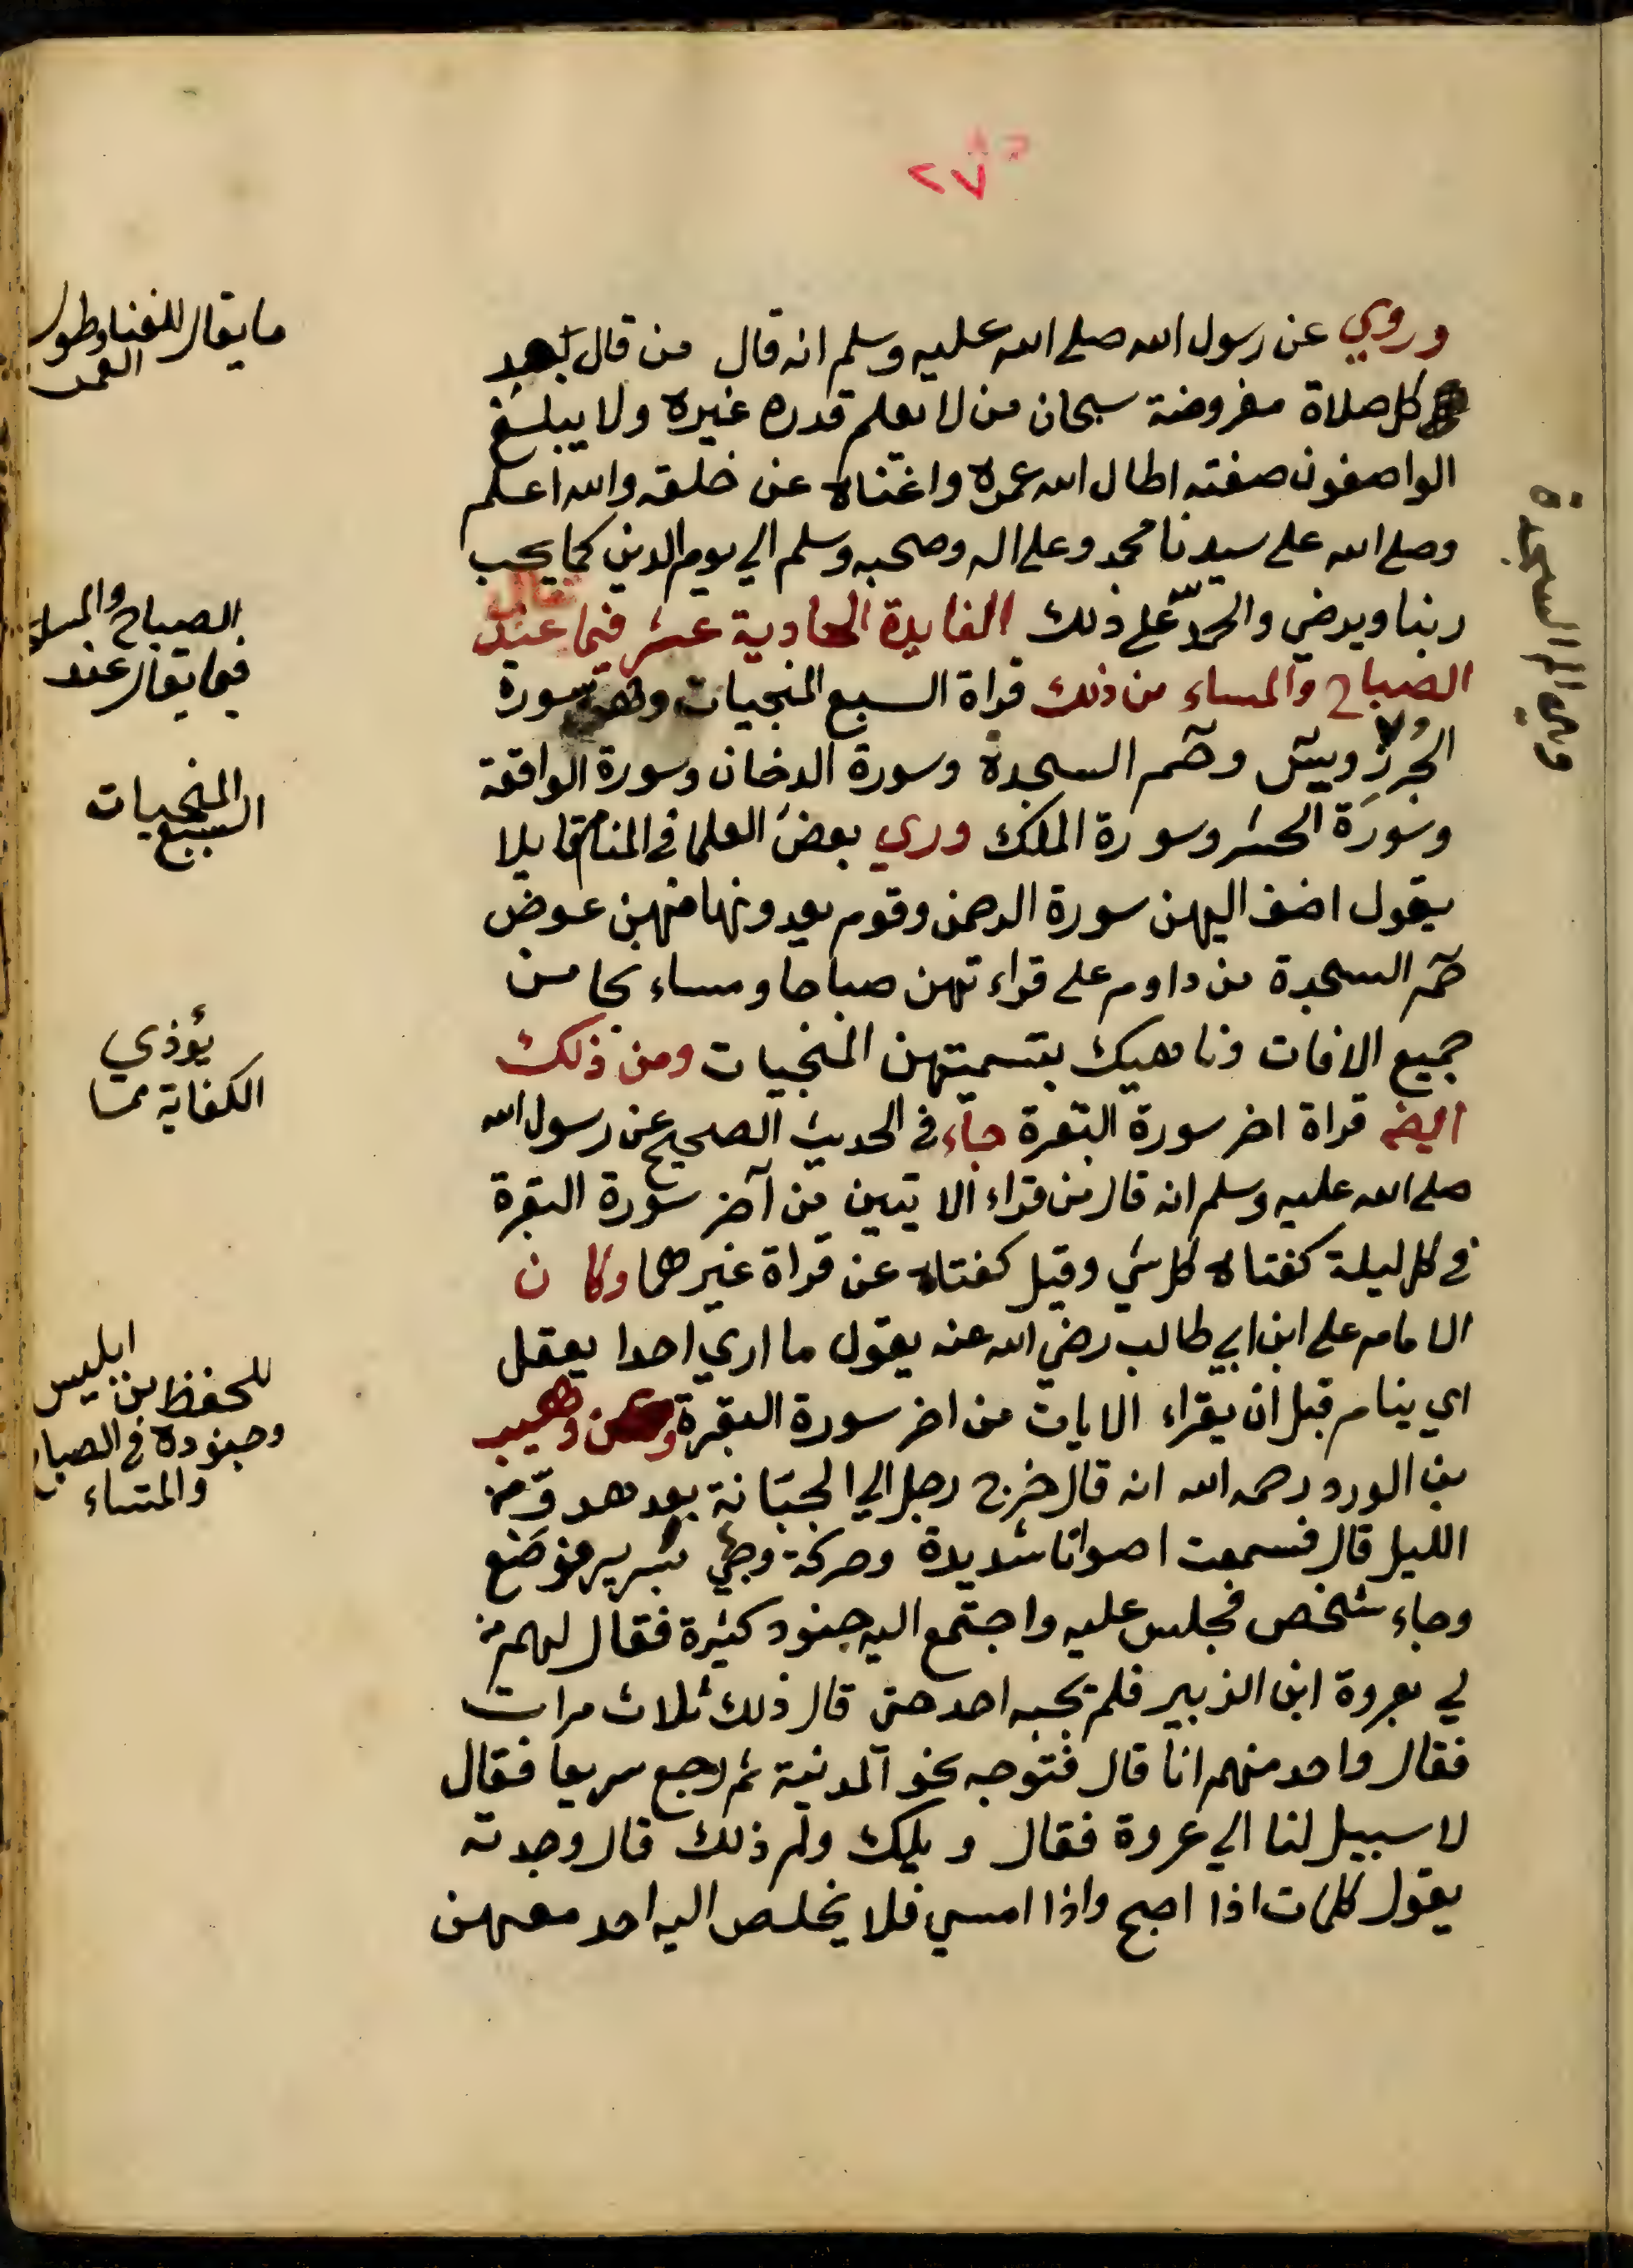 ٢٧
وروي عن رسول الله صلى الله عليه وسلم انه قال من قال بعد
كل صلاة مفروضة سبحان من لا يعلم قدره غيره ولا يبلغ
الواصفون صفته اطال الله عمره واغناه عن خلقه والله اعلم
وصلى الله على سيدنا محمد وعلى اله وصحبه وسلم الي يوم الدين كما يحب
ربنا ويرضي والحمد لله على ذلك الفايدة الحادية عشر فيما يقال عند
الصباح والمساء من ذلك قراة السبع المنجيات وهي سورة
الجرز ويس وحم السجدة وسورة الدخان وسورة الواقعة
وسورة الحشر وسورة الملك وري بعض العلما في المنام قايلا
يقول اضف اليهن سورة الرحمن وقوم يعدونها منهن عوض
حم السجدة من داوم على قراءتهن صباحا ومساء نجا من
جميع الافات وناهيك بتسميتهن المنجيات ومن ذلك
ايضا قراة اخر سورة البقرة جاء في الحديث الصحيح عن رسول الله
صلى الله عليه وسلم انه قال من قراء الايتين من آخر سورة البقرة
في كل ليلة كفتاه كل شي وقيل كفتاه عن قراة غيرهما وكان
الامام على ابن ابي طالب رضي الله عنه يقول ما اري احدا يعقل
اي ينام قبل ان يقراء الايات من اخر سورة البقرة وعن وهيب
بن الورد رحمه الله انه قال خرج رجل الي الجبانة بعد هدو من
الليل قال فسمعت اصواتا شديدة وحركة وجئ بسرير فوضع
وجاء شخص فجلس عليه واجتمع اليه جنود كثيرة فقال لهم من
لي بعروة ابن الزبير فلم يجبه احد حتى قال ذلك ثلاث مرات
فقال واحد منهم انا قال فتوجه نحو المدينة ثم رجع سريعا فقال
لا سبيل لنا الي عروة فقال ويلك ولم ذلك قال وجدته
يقول كلمات اذا اصبح واذا امسي فلا يخلص اليه احد معهن
ما يقال للغنا وطول
العمر
الصباح والمساء
فيما يقال عند
المنجيات
السبع
يؤذي
الكفاية مما
ابليس
للحفظ من
وجنوده في الصباح
والمساء
وهي الم السجدة